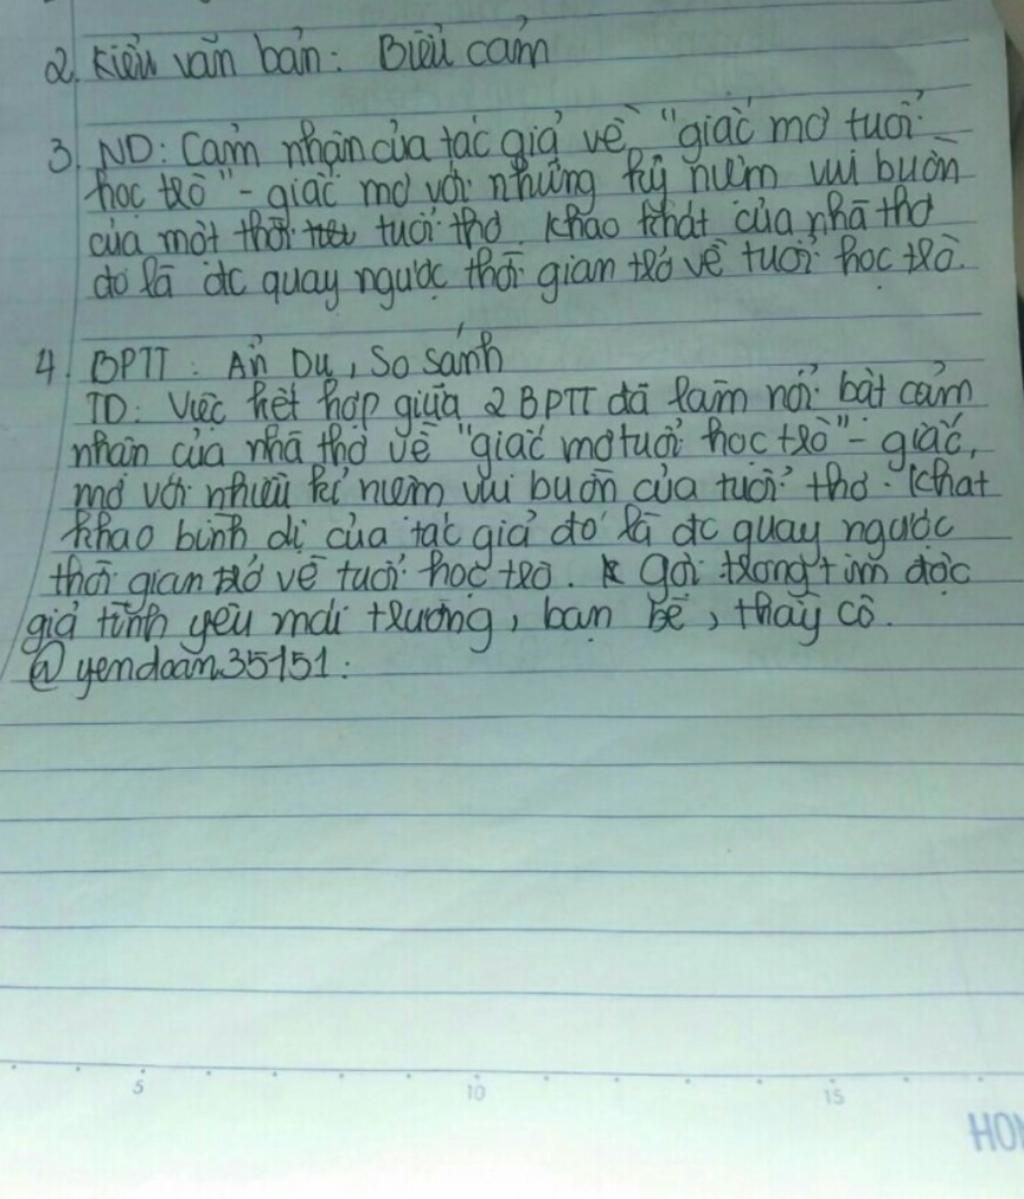 2. Kiểu văn bản: Biểu cảm
3. ND: Cảm nhận của tác giả về "giấc mơ tuổi
học trò" - giấc mơ với những kỷ niệm vui buồn
của một thời tuổi thơ. Khao khát của nhà thơ
đó là đc quay ngược thời gian trở về tuổi học trò.
4. BPTT: Ẩn Dụ, So sánh
TD: Việc kết hợp giữa 2 BPTT đã làm nổi bật cảm
nhận của nhà thơ về "giấc mơ tuổi học trò" - giấc
mơ với nhiều kỉ niệm vui buồn của tuổi thơ. Khát
khao bình dị của tác giả đó là đc quay ngược
thời gian trở về tuổi học trò. Gợi trong tim độc
giả tình yêu mái trường, bạn bè, thầy cô.
@yendoan35151.
5 10 15
HON